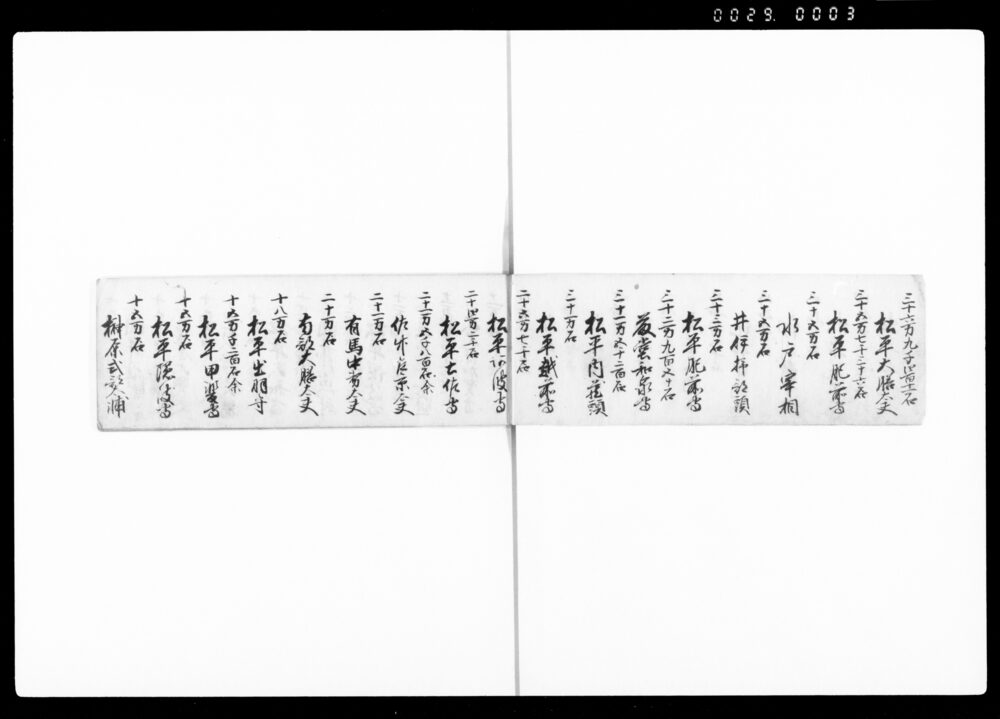 0029. 0003
三十六万九千四百十一石
松平大膳大夫
三十五万七千三十六石
松平肥前守
三十五万石
水戸宰相
三十五万石
井伊掃部頭
三十三万石
松平肥前守
三十二万九百五十石
藤堂和泉守
三十一万五千二百石
松平内蔵頭
三十万石
松平越前守
二十五万七千石
松平阿波守
二十四万二千石
松平土佐守
二十万五千八百石余
佐竹右京大夫
二十一万石
有馬中務大夫
二十万石
南部大膳大夫
十八万石
松平出羽守
十五万千二百石余
松平甲斐守
十五万石
松平隠岐守
十五万石
榊原式部大輔